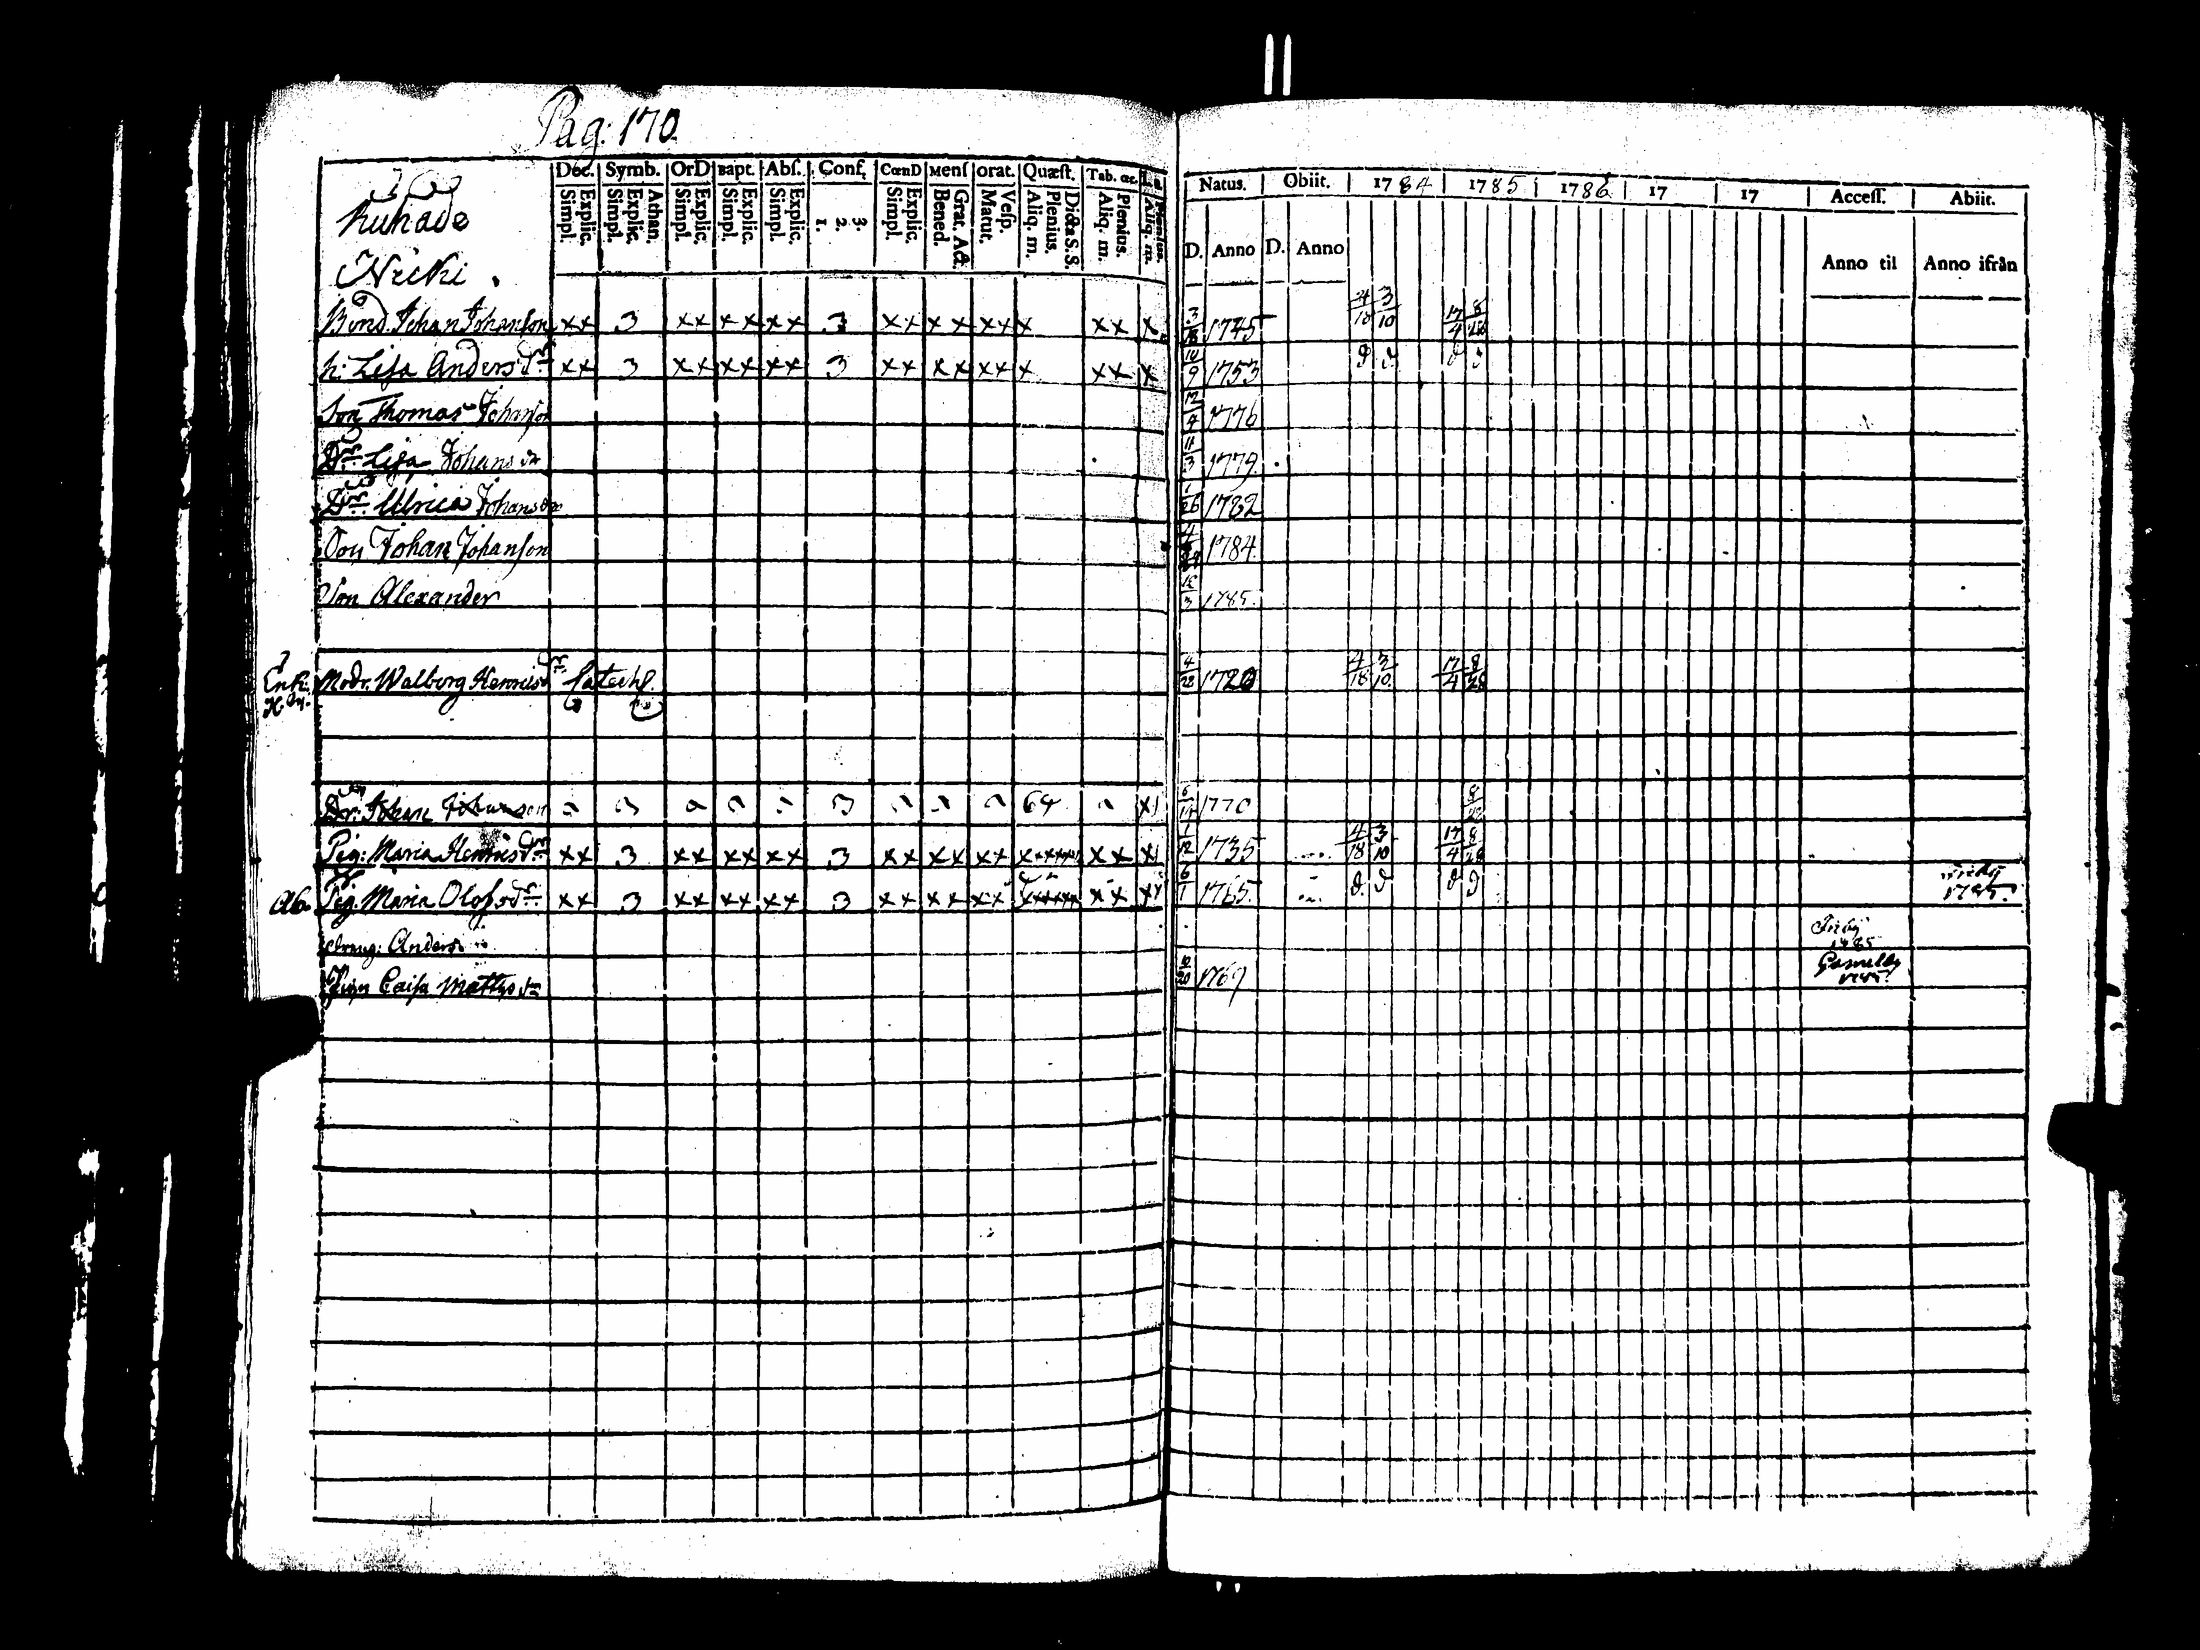 Pag: 170.
Dec. Symb. OrD Bapt. Abſ. Conf. CœnD Menſ Orat. Quæſt. Tab. œc.
Explic. Simpl. Athan. Explic. Simpl. Explic. Simpl. Explic. Simpl. Explic. Simpl. 3. 2. 1. Explic. Simpl. Grat. Act. Bened. Veſp. Matut. Dicta S.S. Plenius. Aliq. m. Plenius. Aliq. m. Plenius. Aliq. m.
Natus. Obiit. 1784 1785 1786 17 17 Acceſſ. Abiit.
D. Anno D. Anno Anno til Anno ifrån
Bond. Johan Johanson xx 3 xx xx xx 3 xx xx xx x xx x 1745 3 10 17 8 4 28
h: Lisa Anders dr xx 3 xx xx xx 3 xx xx xx x xx x 10 9 1753
Son Thomas Johanson 1776
Dr Lisa Johans dr 11 3 1779
Dr Ulrica Johansdr 1 26 1782
Son Johan Johanson 1784
Son Alexander 1785
Enk.
Modr. Walborg Henricsdr 4 28 1720 4 3 18 10 17 8 4 28
Johan Johanson 3 3 64 x 6 14 1770 8
Pig: Maria Henricsdr xx 3 xx xx xx 3 xx xx xx xx x 1 12 1735 4 3 18 10 17 8 4 28
Ab. Pig. Maria Olofsdr xx 3 xx xx xx 3 xx xx xx xx 6 1 1765 1785
dreng: Anders 1785
Pign Caisa Matts dr 20 1769 Gammelby 1785